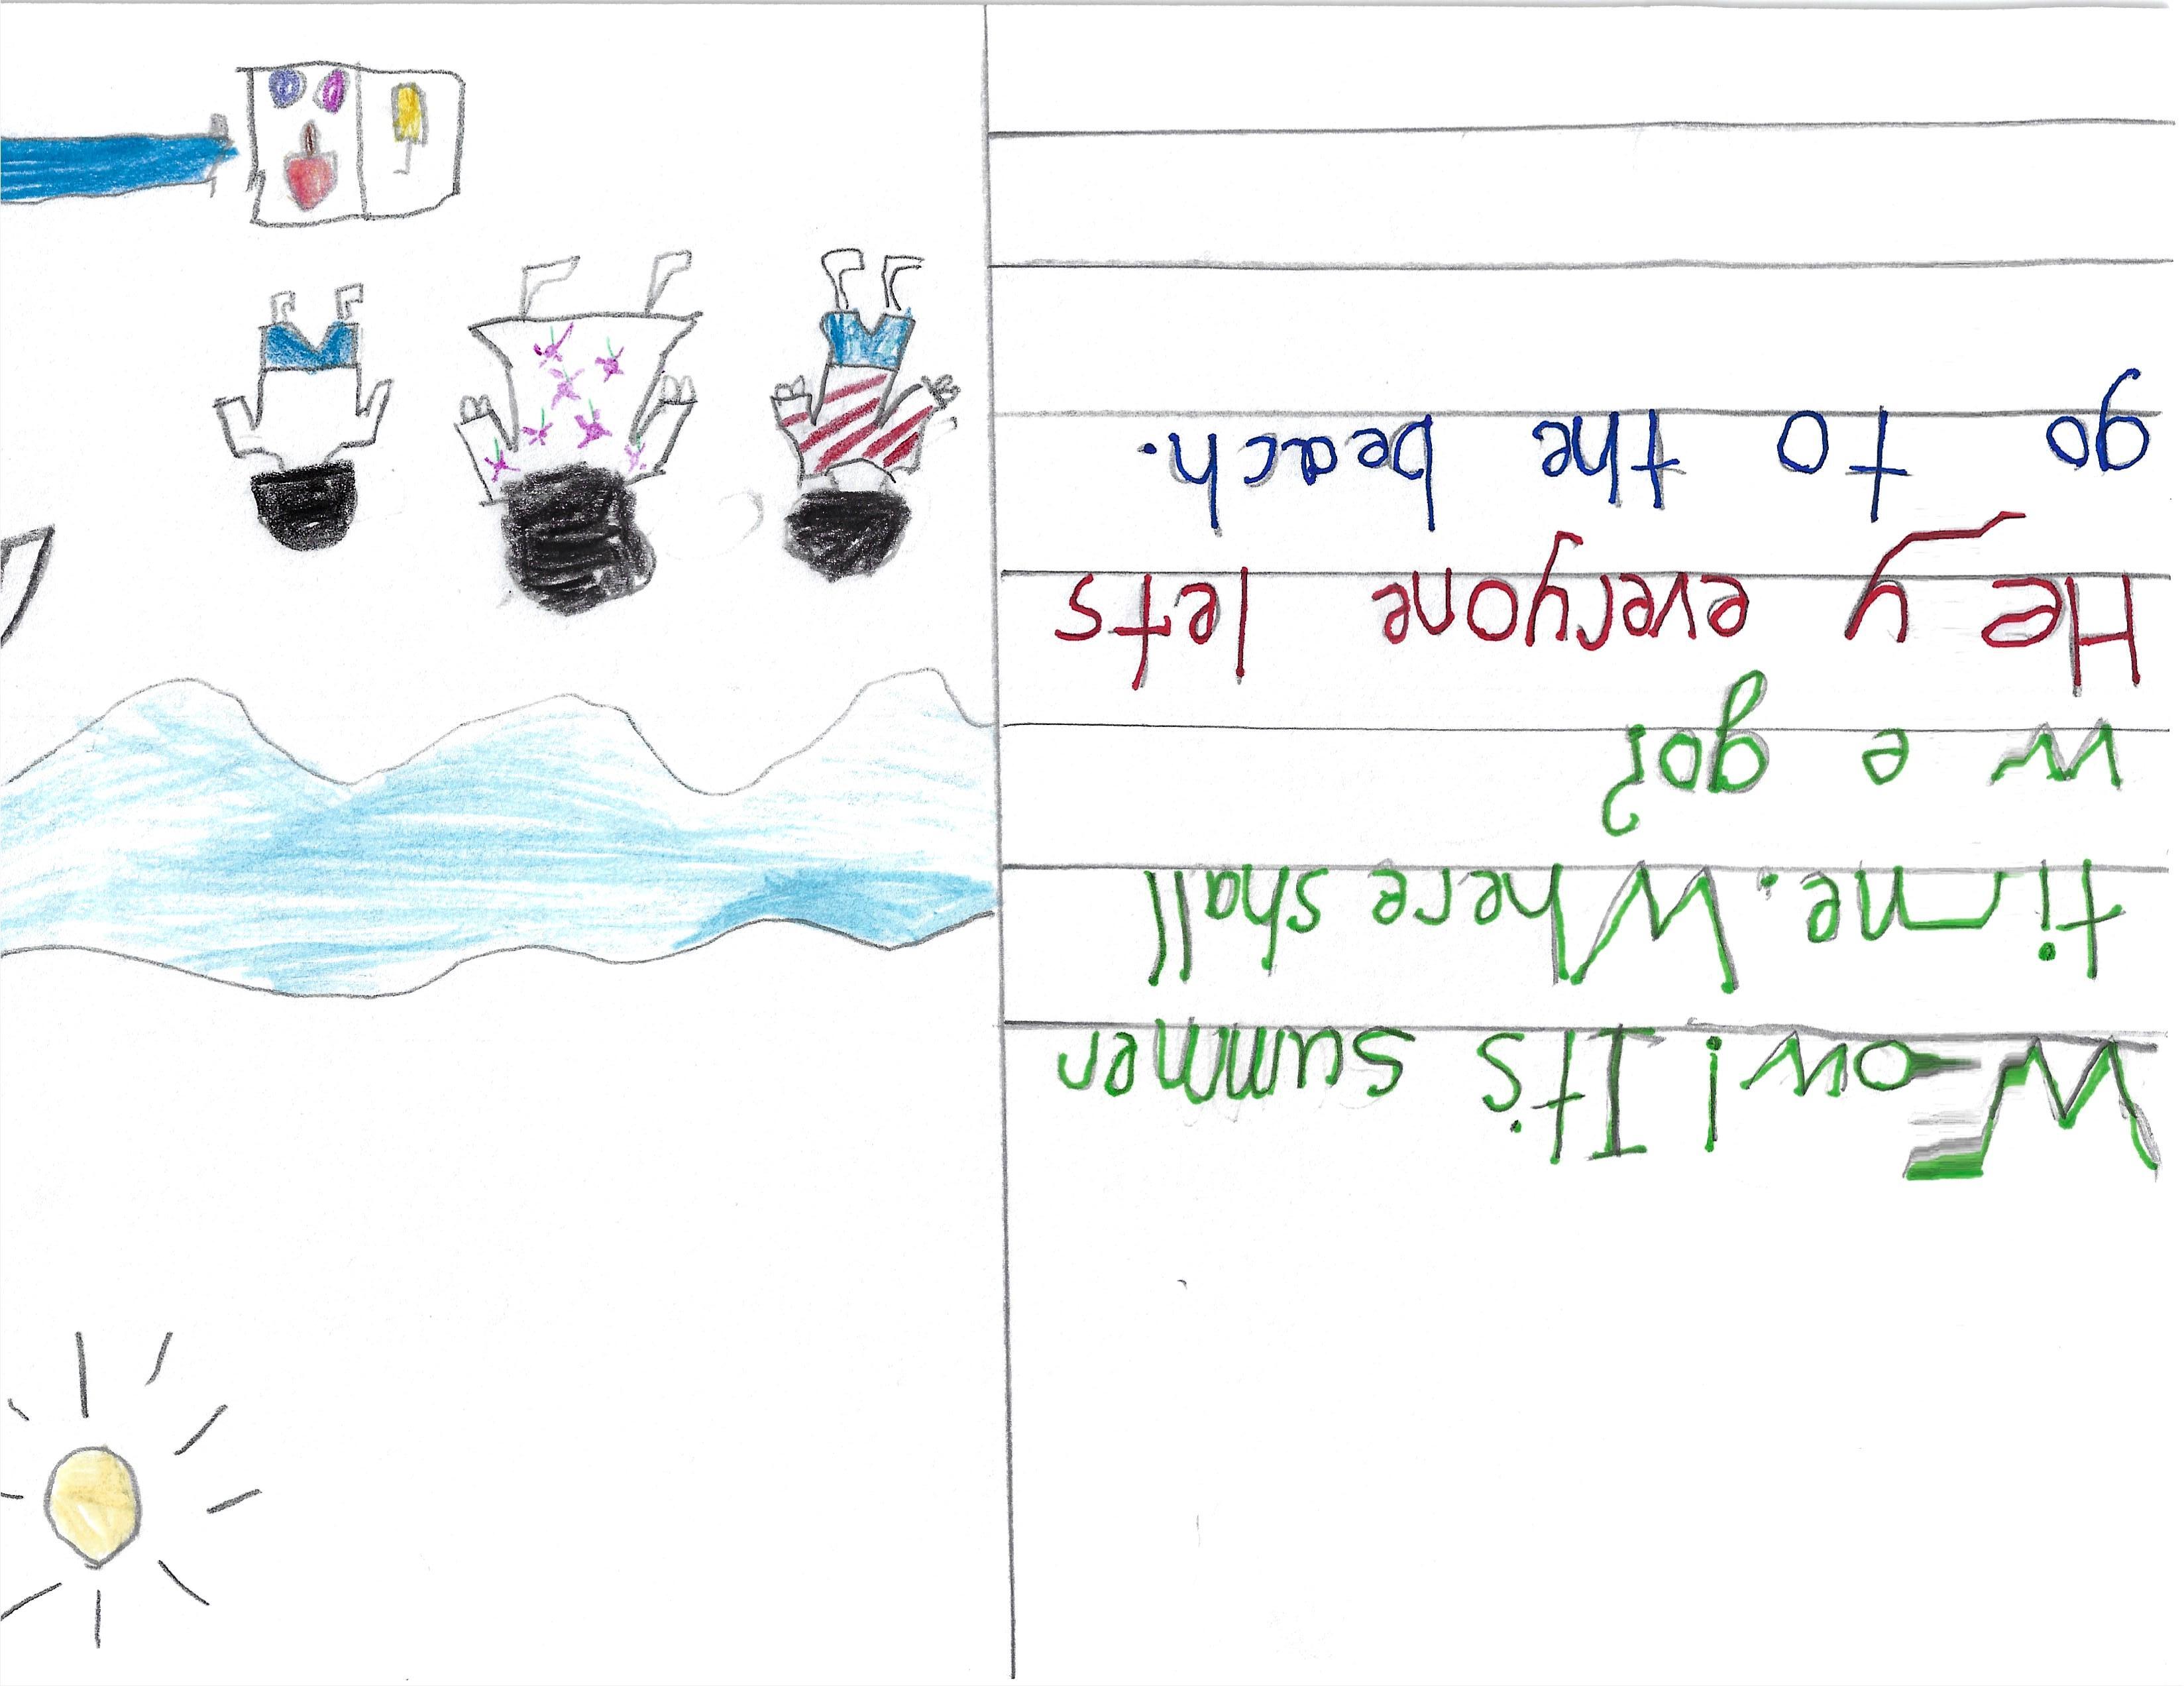 Wow! It's summer
time. Where shall
we go?
Hey everyone lets
go to the beach.